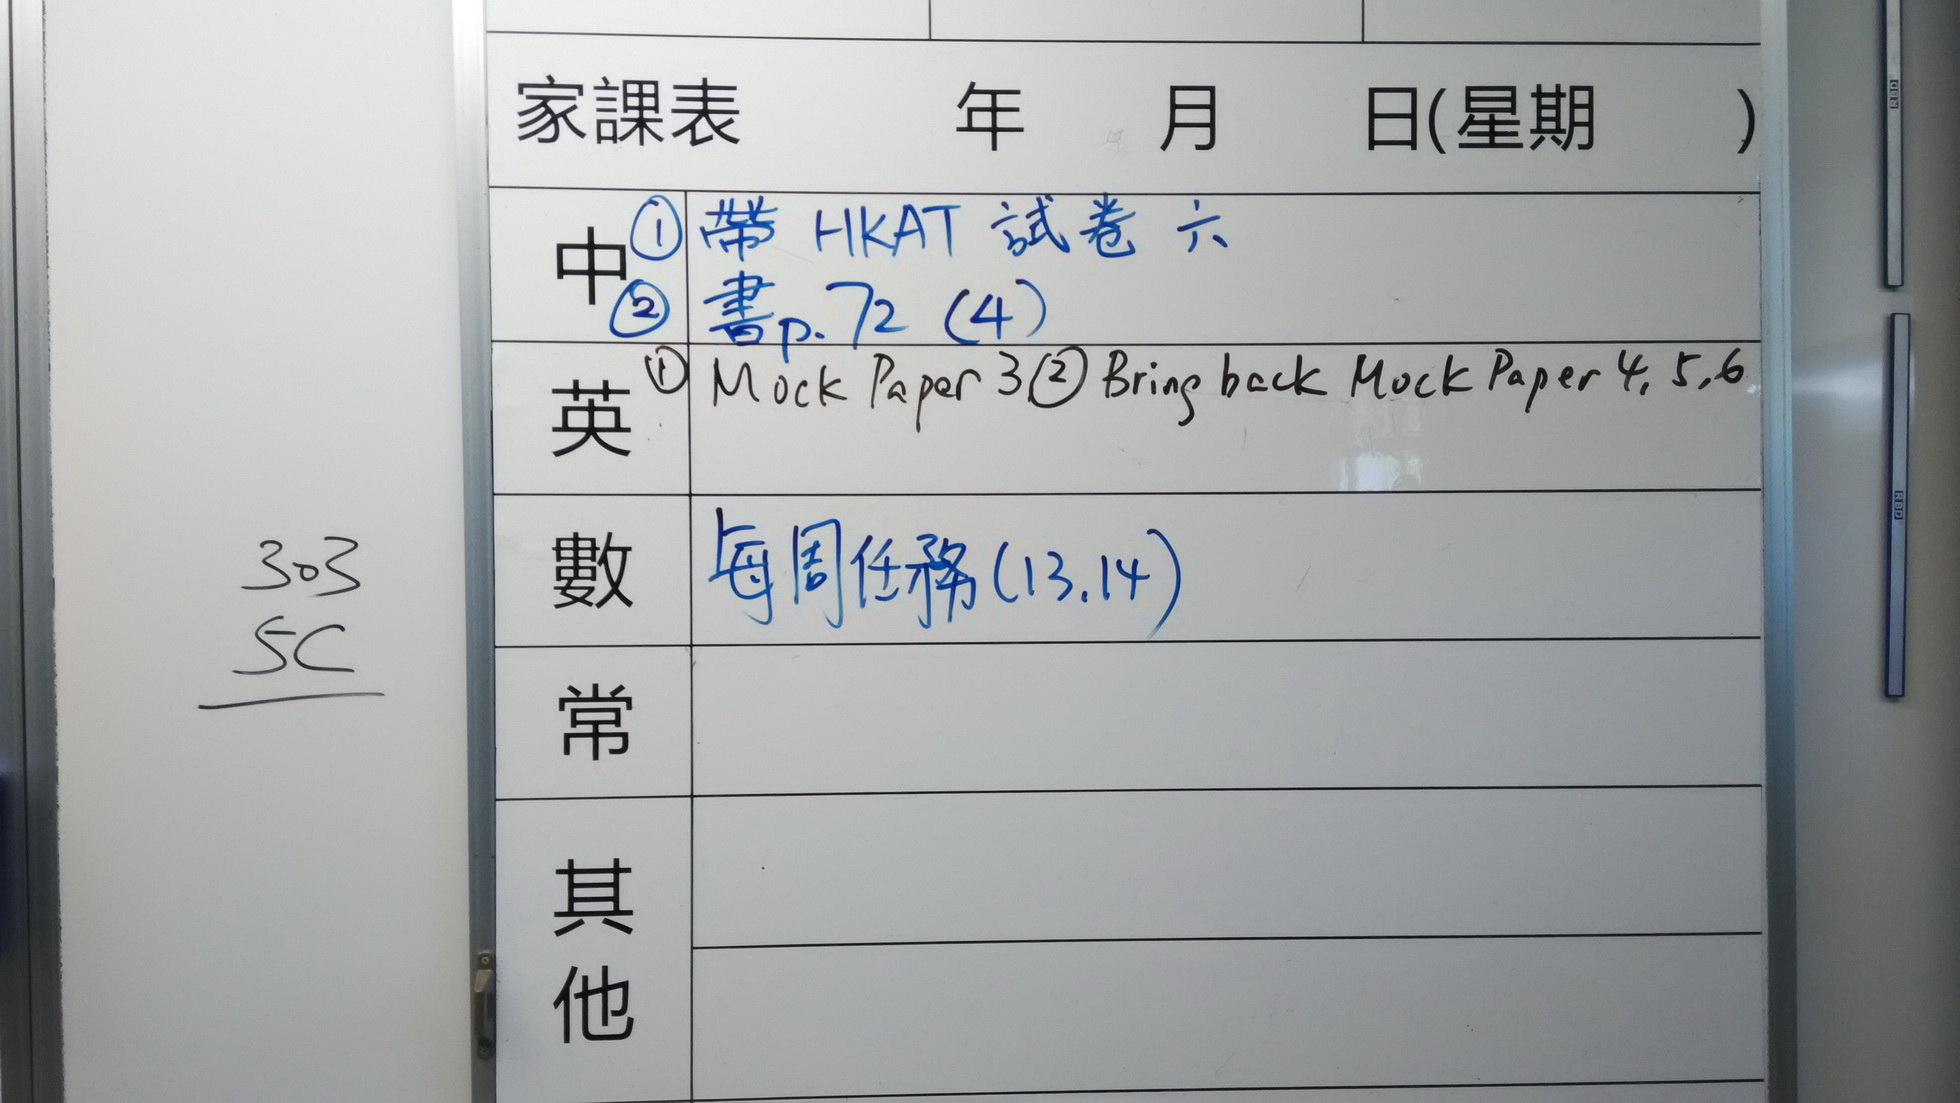 家課表 年 月 日(星期 )
中 ① 帶 HKAT 試卷 六
② 書p.72 (4)
英 ① Mock Paper 3 ② Bring back Mock Paper 4, 5, 6
數 每周任務(13.14)
常
其他
303
5C
RBD
RBD